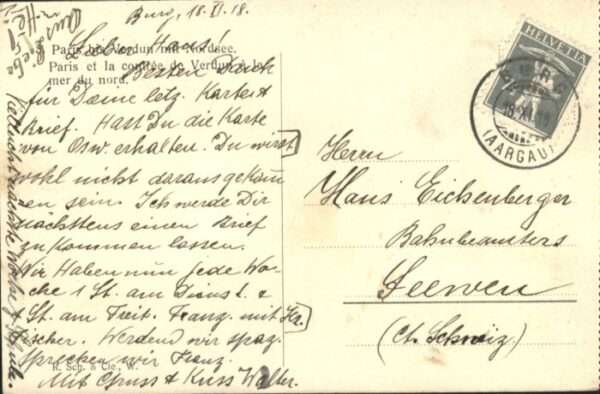 Burg, 18.XI.18.
Paris bis Verdun mit Nordsee.
Paris et la contrée de Verdun à la
mer du nord.
Lieber Hans!
Besten Dank
für Deine letz. Karte &
Brief. Hast Du die Karte
von Osw. erhalten. Du wirst
wohl nicht daraus gekom
en sein. Ich werde Dir
nächstens einen Brief
zu kommen lassen.
Wir Haben nun jede Wo-
che 1 St. am Dienst. &
St. am Freit. Franz. mit Hr.
Fischer. Werdend wir spaz.
sprechen wir Franz.
Mit Gruss & Kuss Walter.
R. Sch. & Cie., W.
nächste Woche
HELVETIA
BURG
18.XI.18
(AARGAU)
Herrn
Hans Eichenberger
Bahnbeamters
Seewen
(Ct. Schwiz)